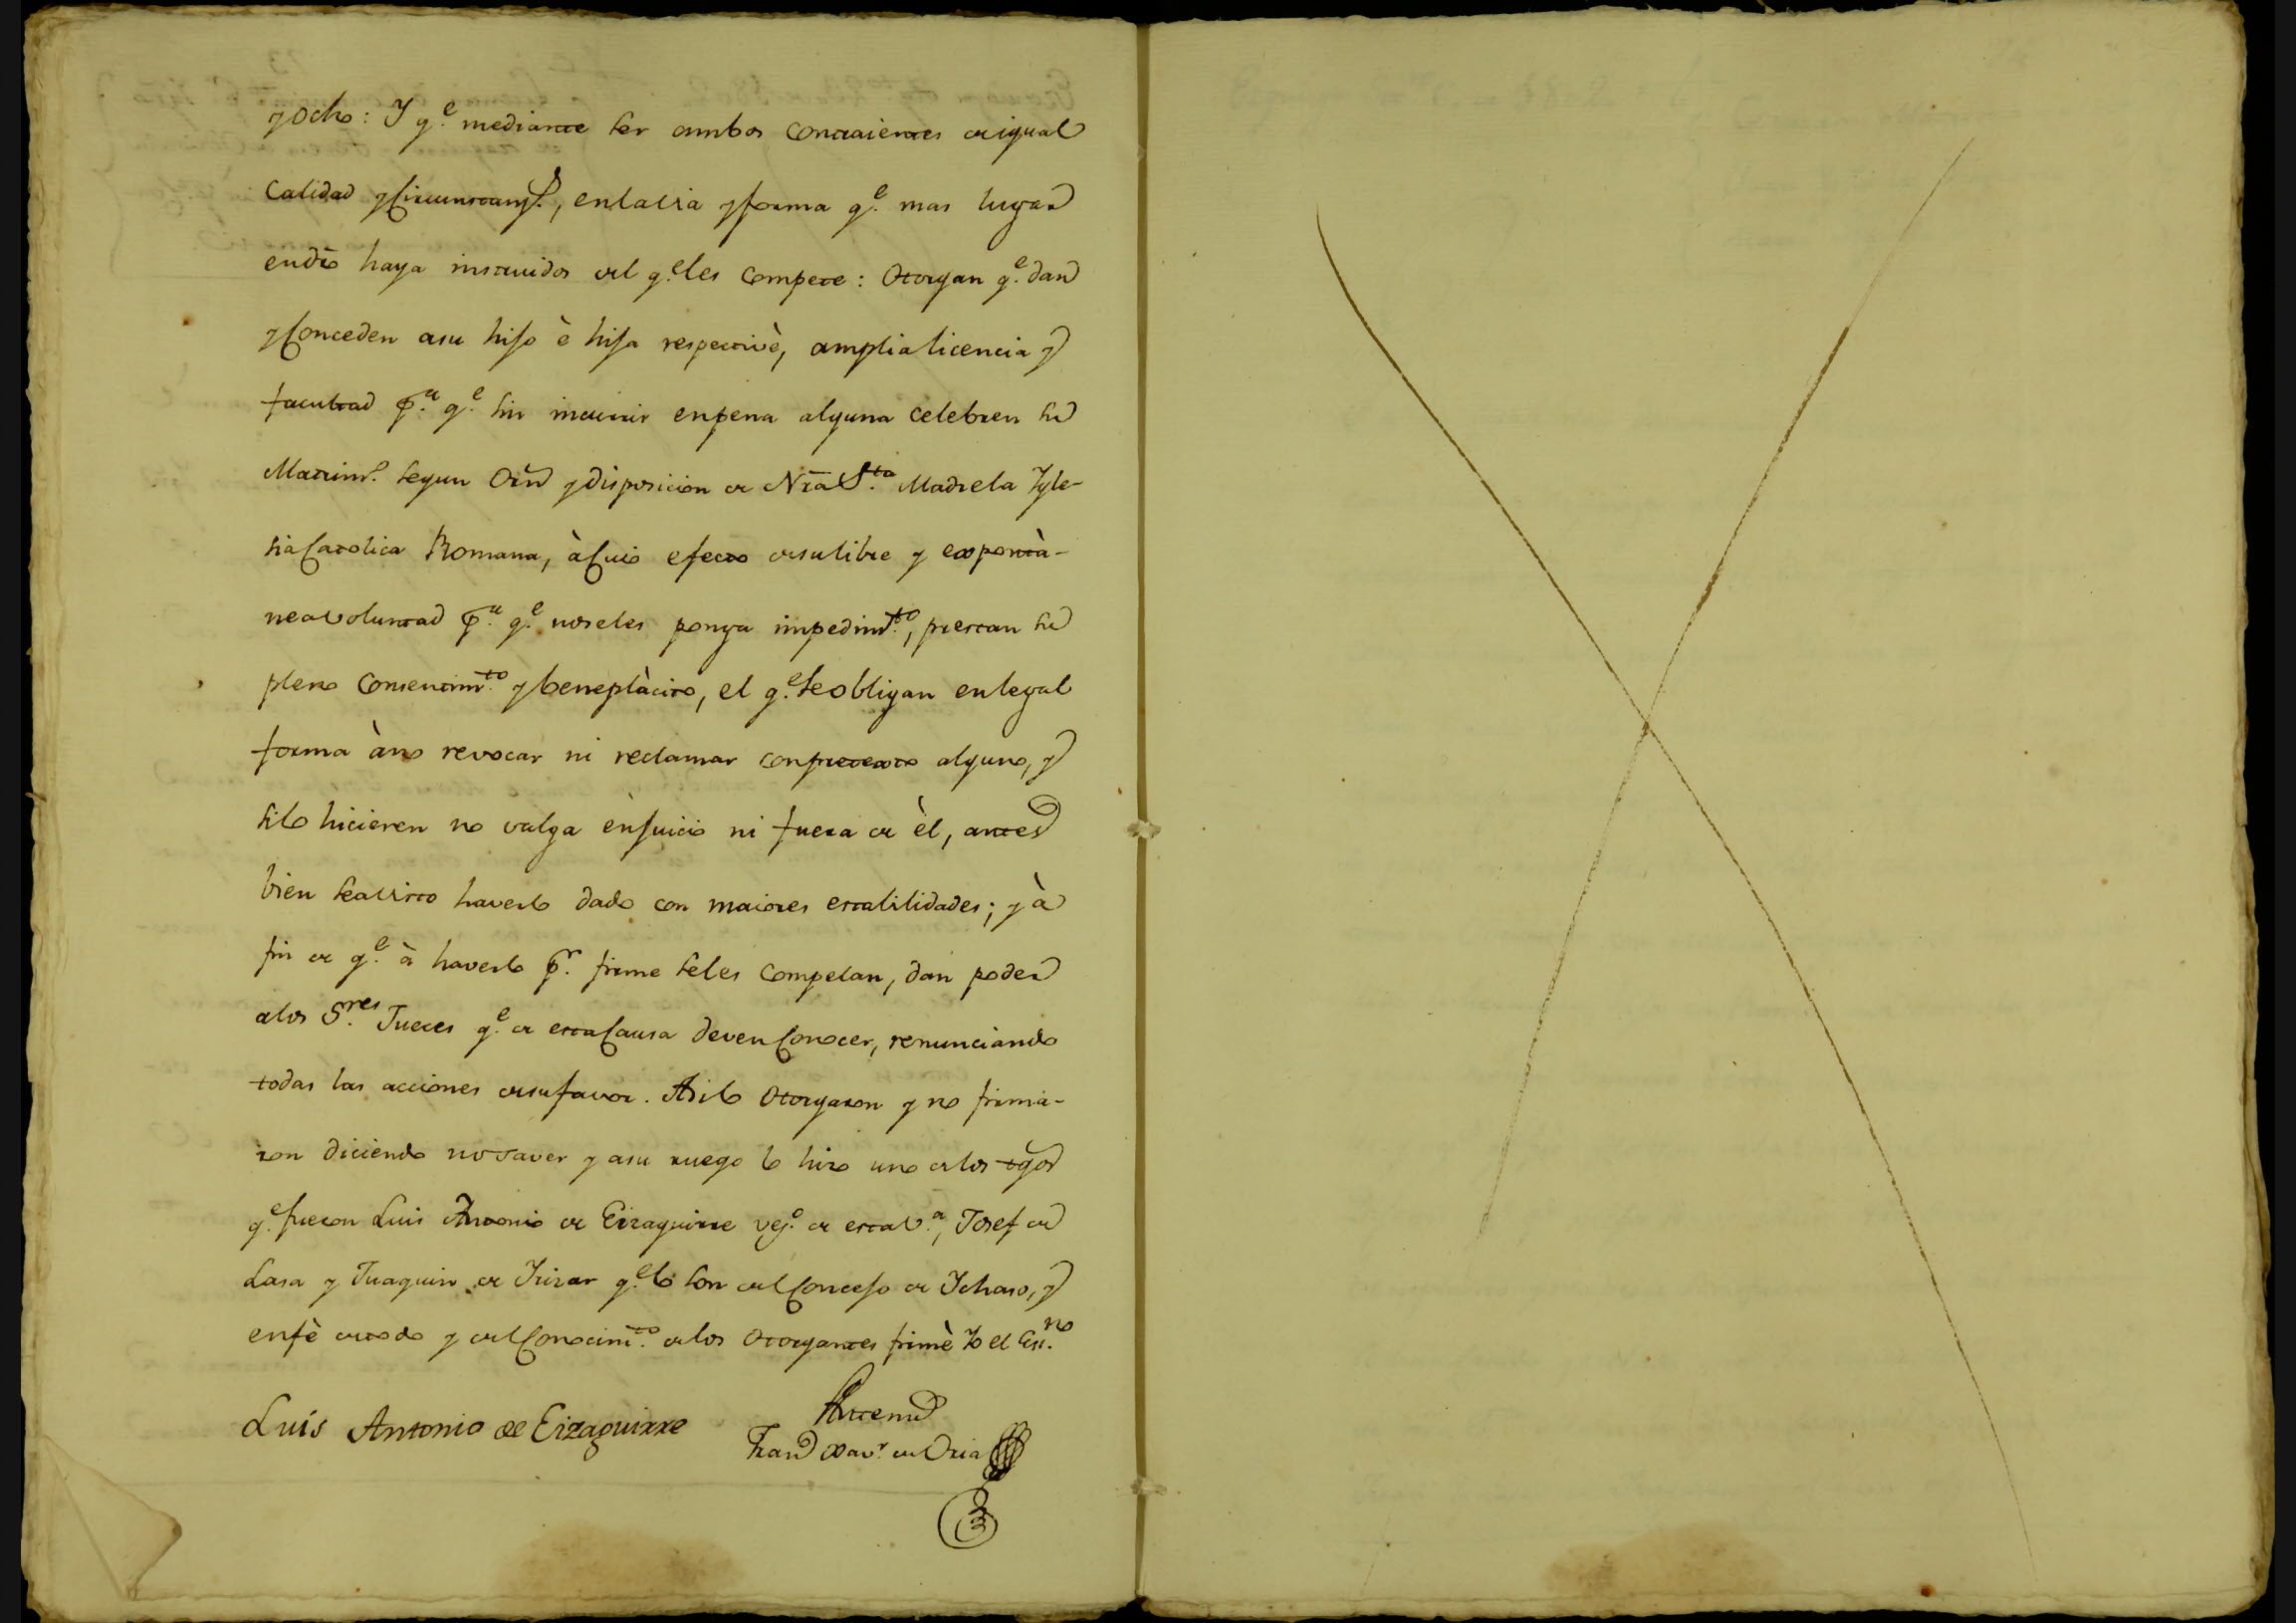 y ocho: Y q.e mediante ser ambos contraientes de igual
calidad y circunstanz.s, en la via y forma q.e mas lugar
en dro haya instruidos del q.e les compete: Otorgan q.e dan
y conceden a su hijo è hija respectivè, amplia licencia y
facultad p.a q.e sin incurrir en pena alguna celebren su
Matrim.o segun Orn y disposicion de Nra S.ta Madre la Ygle-
sia Catolica Romana, à cuio efecto de su libre y expontà-
nea voluntad p.a q.e no se les ponga impedim.to, prestan su
pleno consentim.to y beneplàcito, el q.e se obligan en legal
forma à no revocar ni reclamar con pretexto alguno, y
si lo hicieren no valga èn juicio ni fuera de èl, antes
bien sea visto haverlo dado con maiores estabilidades; y à
fin de q.e à haverlo p.r firme se les compelan, dan poder
a los S.res Jueces q.e de esta Causa deven conocer, renunciando
todas las acciones de su favor. Asi lo otorgaron y no firma-
ron diciendo no saver y a su ruego lo hizo uno de los tgos
q.e fueron Luis Antonio de Eizaguirre vez.o de esta V.a, Josef de
Lasa y Juaquin de Irizar q.e lo son del Concejo de Ychaso, y
en fè de todo y del conocim.to de los otorgantes firmè Yo el Ess.no
Luis Antonio de Eizaguirre
Ante mi
Fran.co Xav.r de Oria